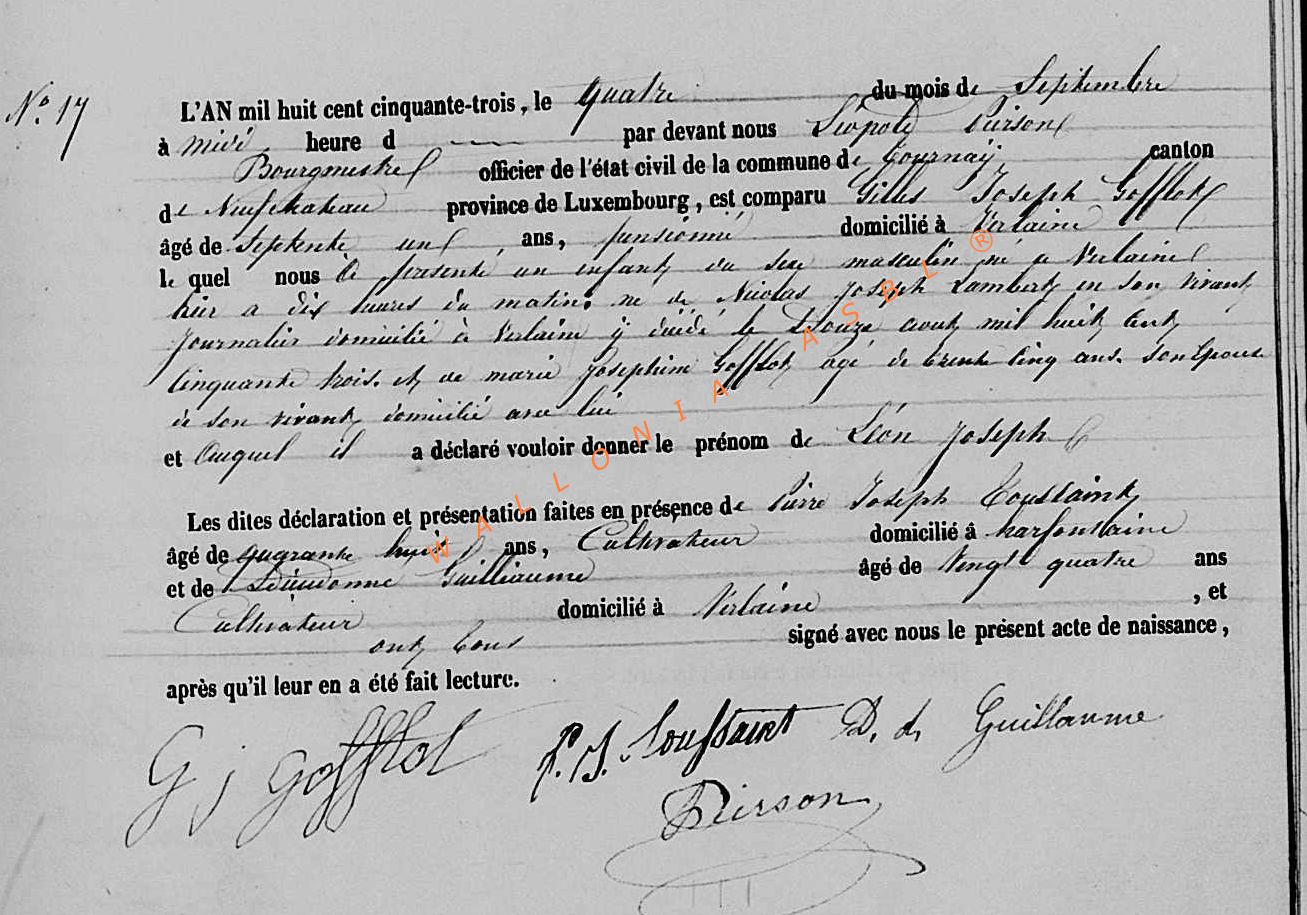 N° 17
L'AN mil huit cent cinquante-trois, le quatre du mois de Septembre
à midi heure d par devant nous Léopold Pierson
Bourgmestre officier de l'état civil de la commune de Tournay canton
de Neufchateau province de Luxembourg, est comparu Gilles Joseph Gofflot
âgé de Septente un ans, pensionné domicilié à Verlaine
le quel nous à presenté un enfant du sexe masculin né a Verlaine
hier a dix heures du matin. né de Nicolas Joseph Lambert en son vivant
journalier domicilié à Verlaine ÿ décédé le Douze aout mil huit cent
cinquante trois. et de marie Josephine Gofflot agé de trente cinq ans. son Epouse
de son vivant domicilié avec lui
et auquel il a déclaré vouloir donner le prénom de Léon Joseph
Les dites déclaration et présentation faites en présence de Pierre Joseph Toussaint
âgé de quarante huit ans, Cultivateur domicilié à harfontaine
et de Dieudonne Guilliaume âgé de Vengt quatre ans
Cultivateur domicilié à Verlaine , et
ont tous signé avec nous le présent acte de naissance,
après qu'il leur en a été fait lecture.
G j Gofflot P. J. Toussaint D. d. Guillaume
Pierson
WALLONIA ASBL ®